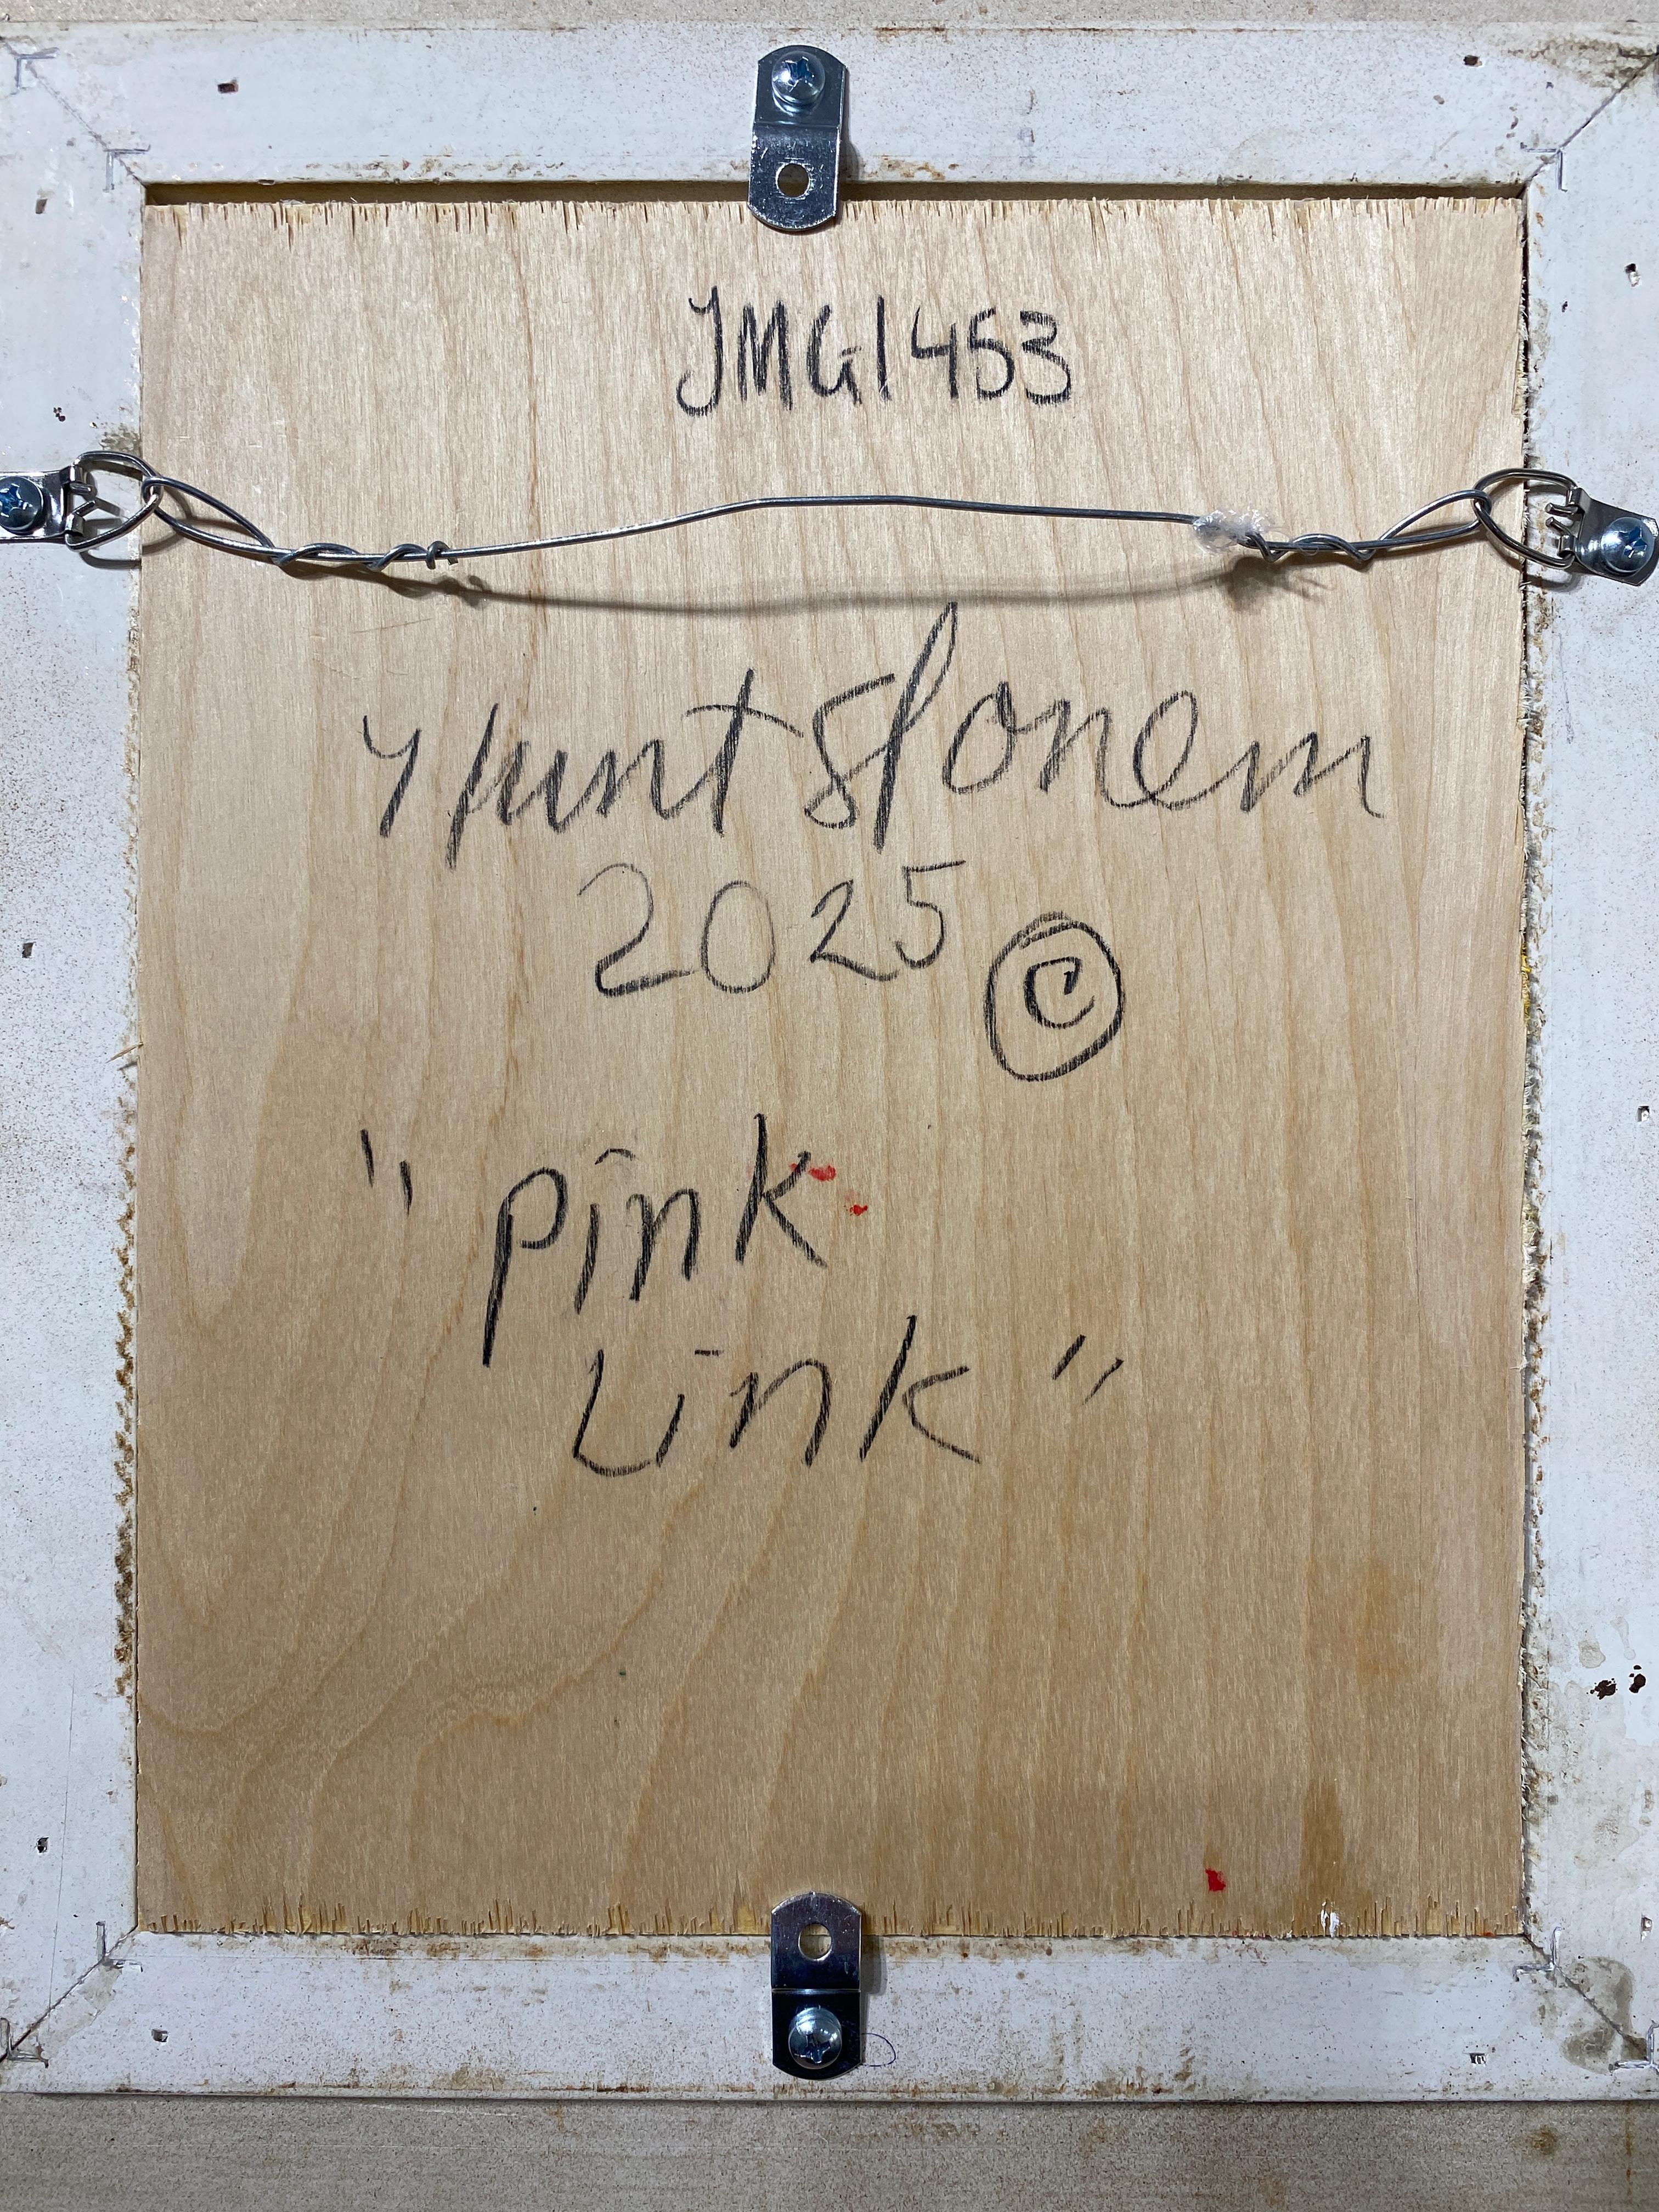 JMG1453
Hunt Slonem
2025 ©
"Pink
Link"